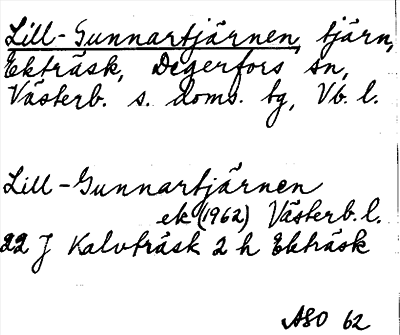 Lill-Gunnartjärnen, tjärn,
Ekträsk, Degerfors sn,
Västerb. s. doms. tg, Vb. l.
Lill-Gunnartjärnen
ek (1962) Västerb. l.
22 J Kalvträsk 2 h Ekträsk
ASO 62